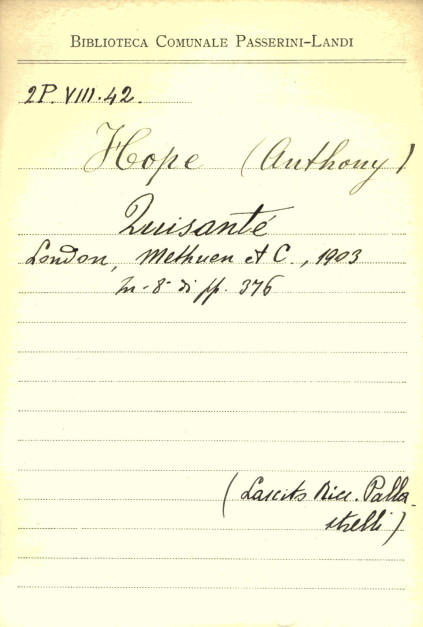 BIBLIOTECA COMUNALE PASSERINI-LANDI
2P. VIII. 42.
Hope (Anthony)
Quisanté
London, Methuen et C., 1903
In-8° di pp. 376
(Lascito Palla-
strelli)